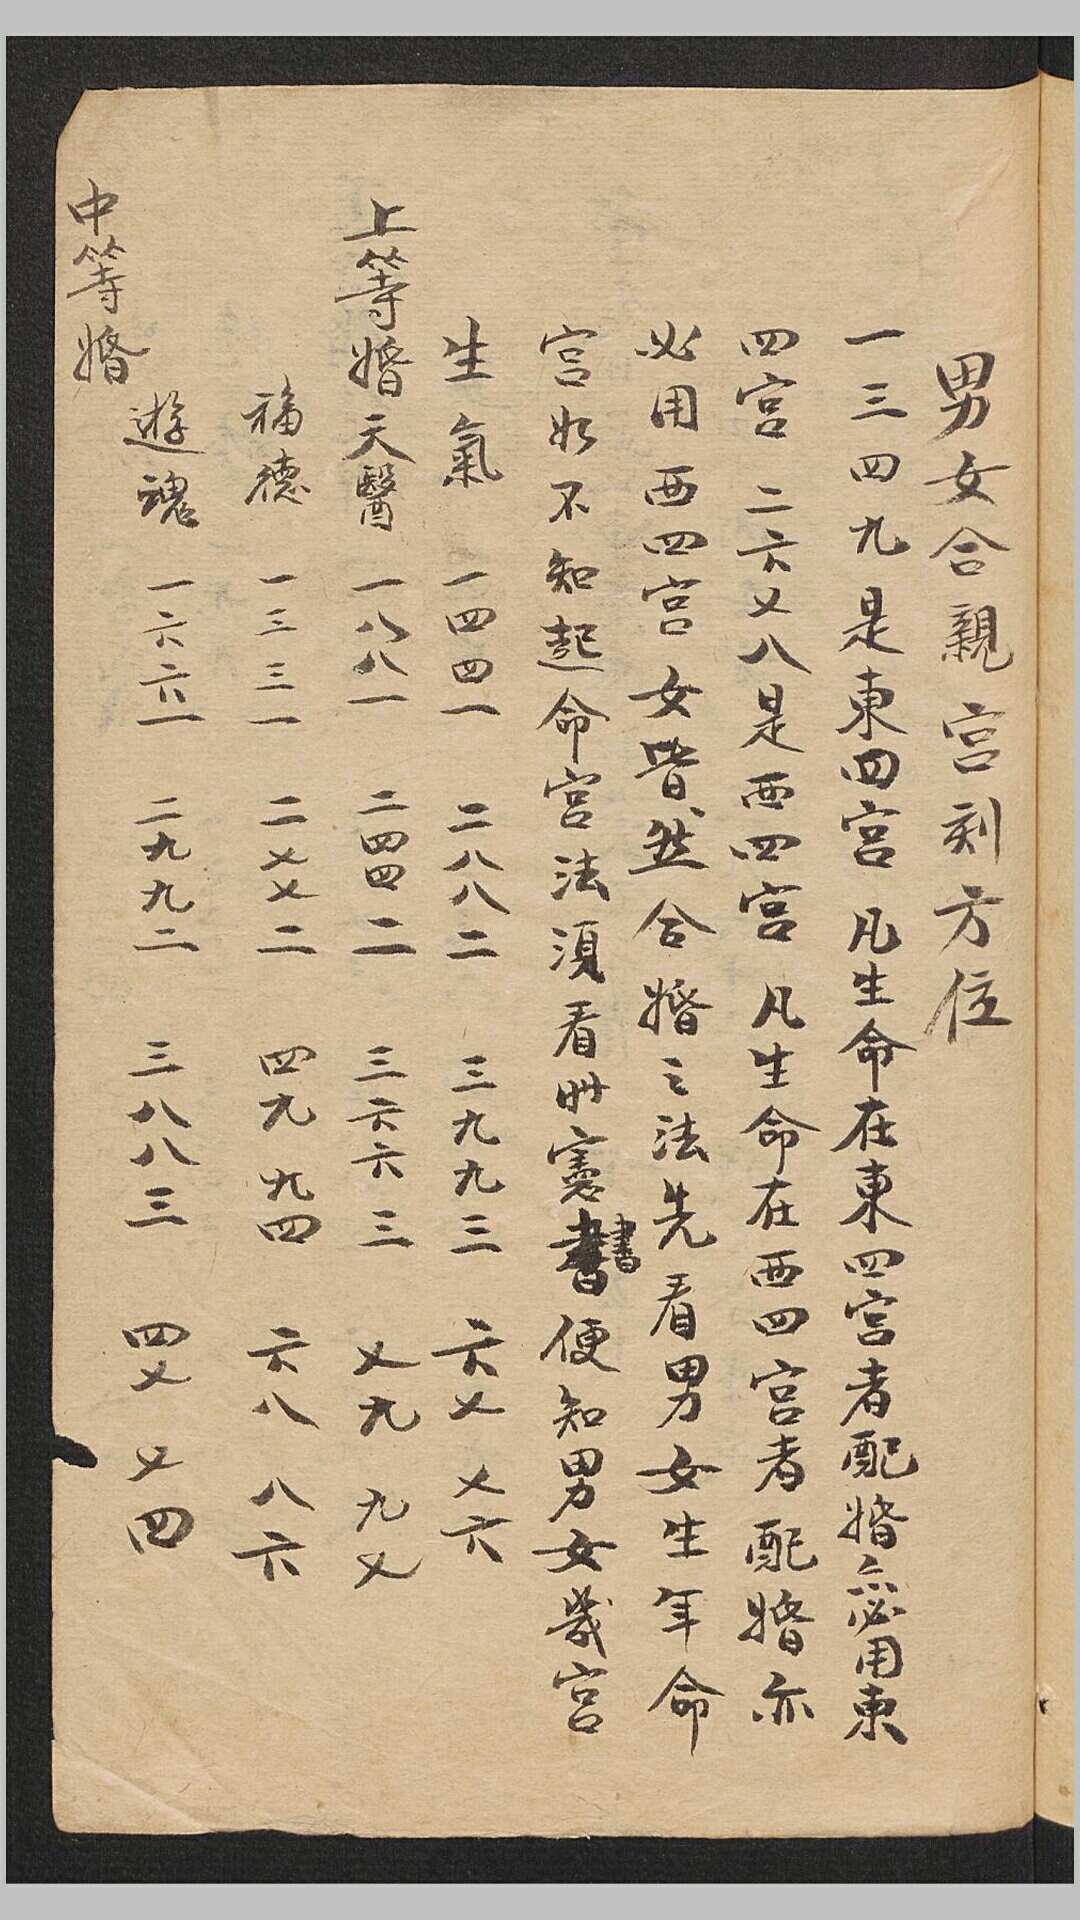 男女合親宮刻方位
一三四九是東四宮凡生命在東四宮者配婚亦必用東
四宮二六乂八是西四宮凡生命在西四宮者配婚亦
必用西四宮女皆然合婚之法先看男女生年命
宮如不知起命宮法須看時憲書便知男女幾宮
書
生氣 一四四一 二八八二 三九九三 六乂 乂六
上等婚天醫 一八八一 二四四二 三六六三 乂九 九乂
福德 一三三一 二乂乂二 四九 九四 六八 八六
遊魂 一六六一 二九九二 三八八三 四乂 乂四
中等婚